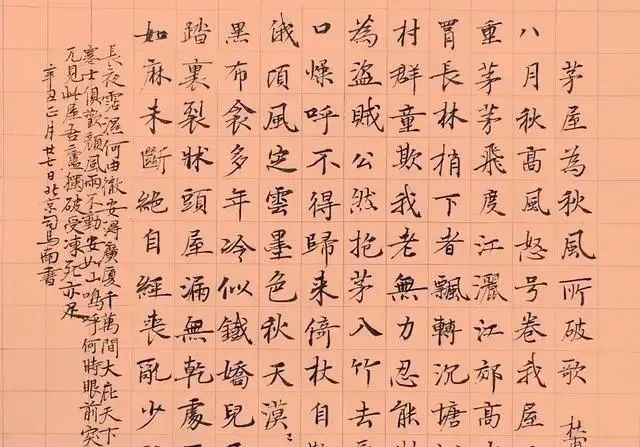 茅屋為秋風所破歌 杜
八月秋高風怒号卷我屋
重茅茅飛度江灑江郊高
罥長林梢下者飄轉沉塘
村群童欺我老無力忍能
為盜賊公然抱茅入竹去
口燥呼不得歸来倚杖自
俄頃風定雲墨色秋天漠〻
黑布衾多年冷似鐵嬌兒
踏裏裂牀頭屋漏無乾處
如麻未斷絕自經喪亂少
長夜霑濕何由徹安得廣厦千萬間大庇天下
寒士俱歡顏風雨不動安如山嗚呼何時眼前突
兀見此屋吾廬獨破受凍死亦足
辛丑正月廿七日北京司馬南書